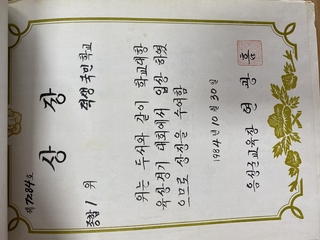 제7284호
상장
종합 1위
국민학교
위는 두서와 같이 학교대항
육상경기 대회에서 입상 하였
으므로 상장을 수여함
1984년 10월 30일
음성군교육장 연 광 흠